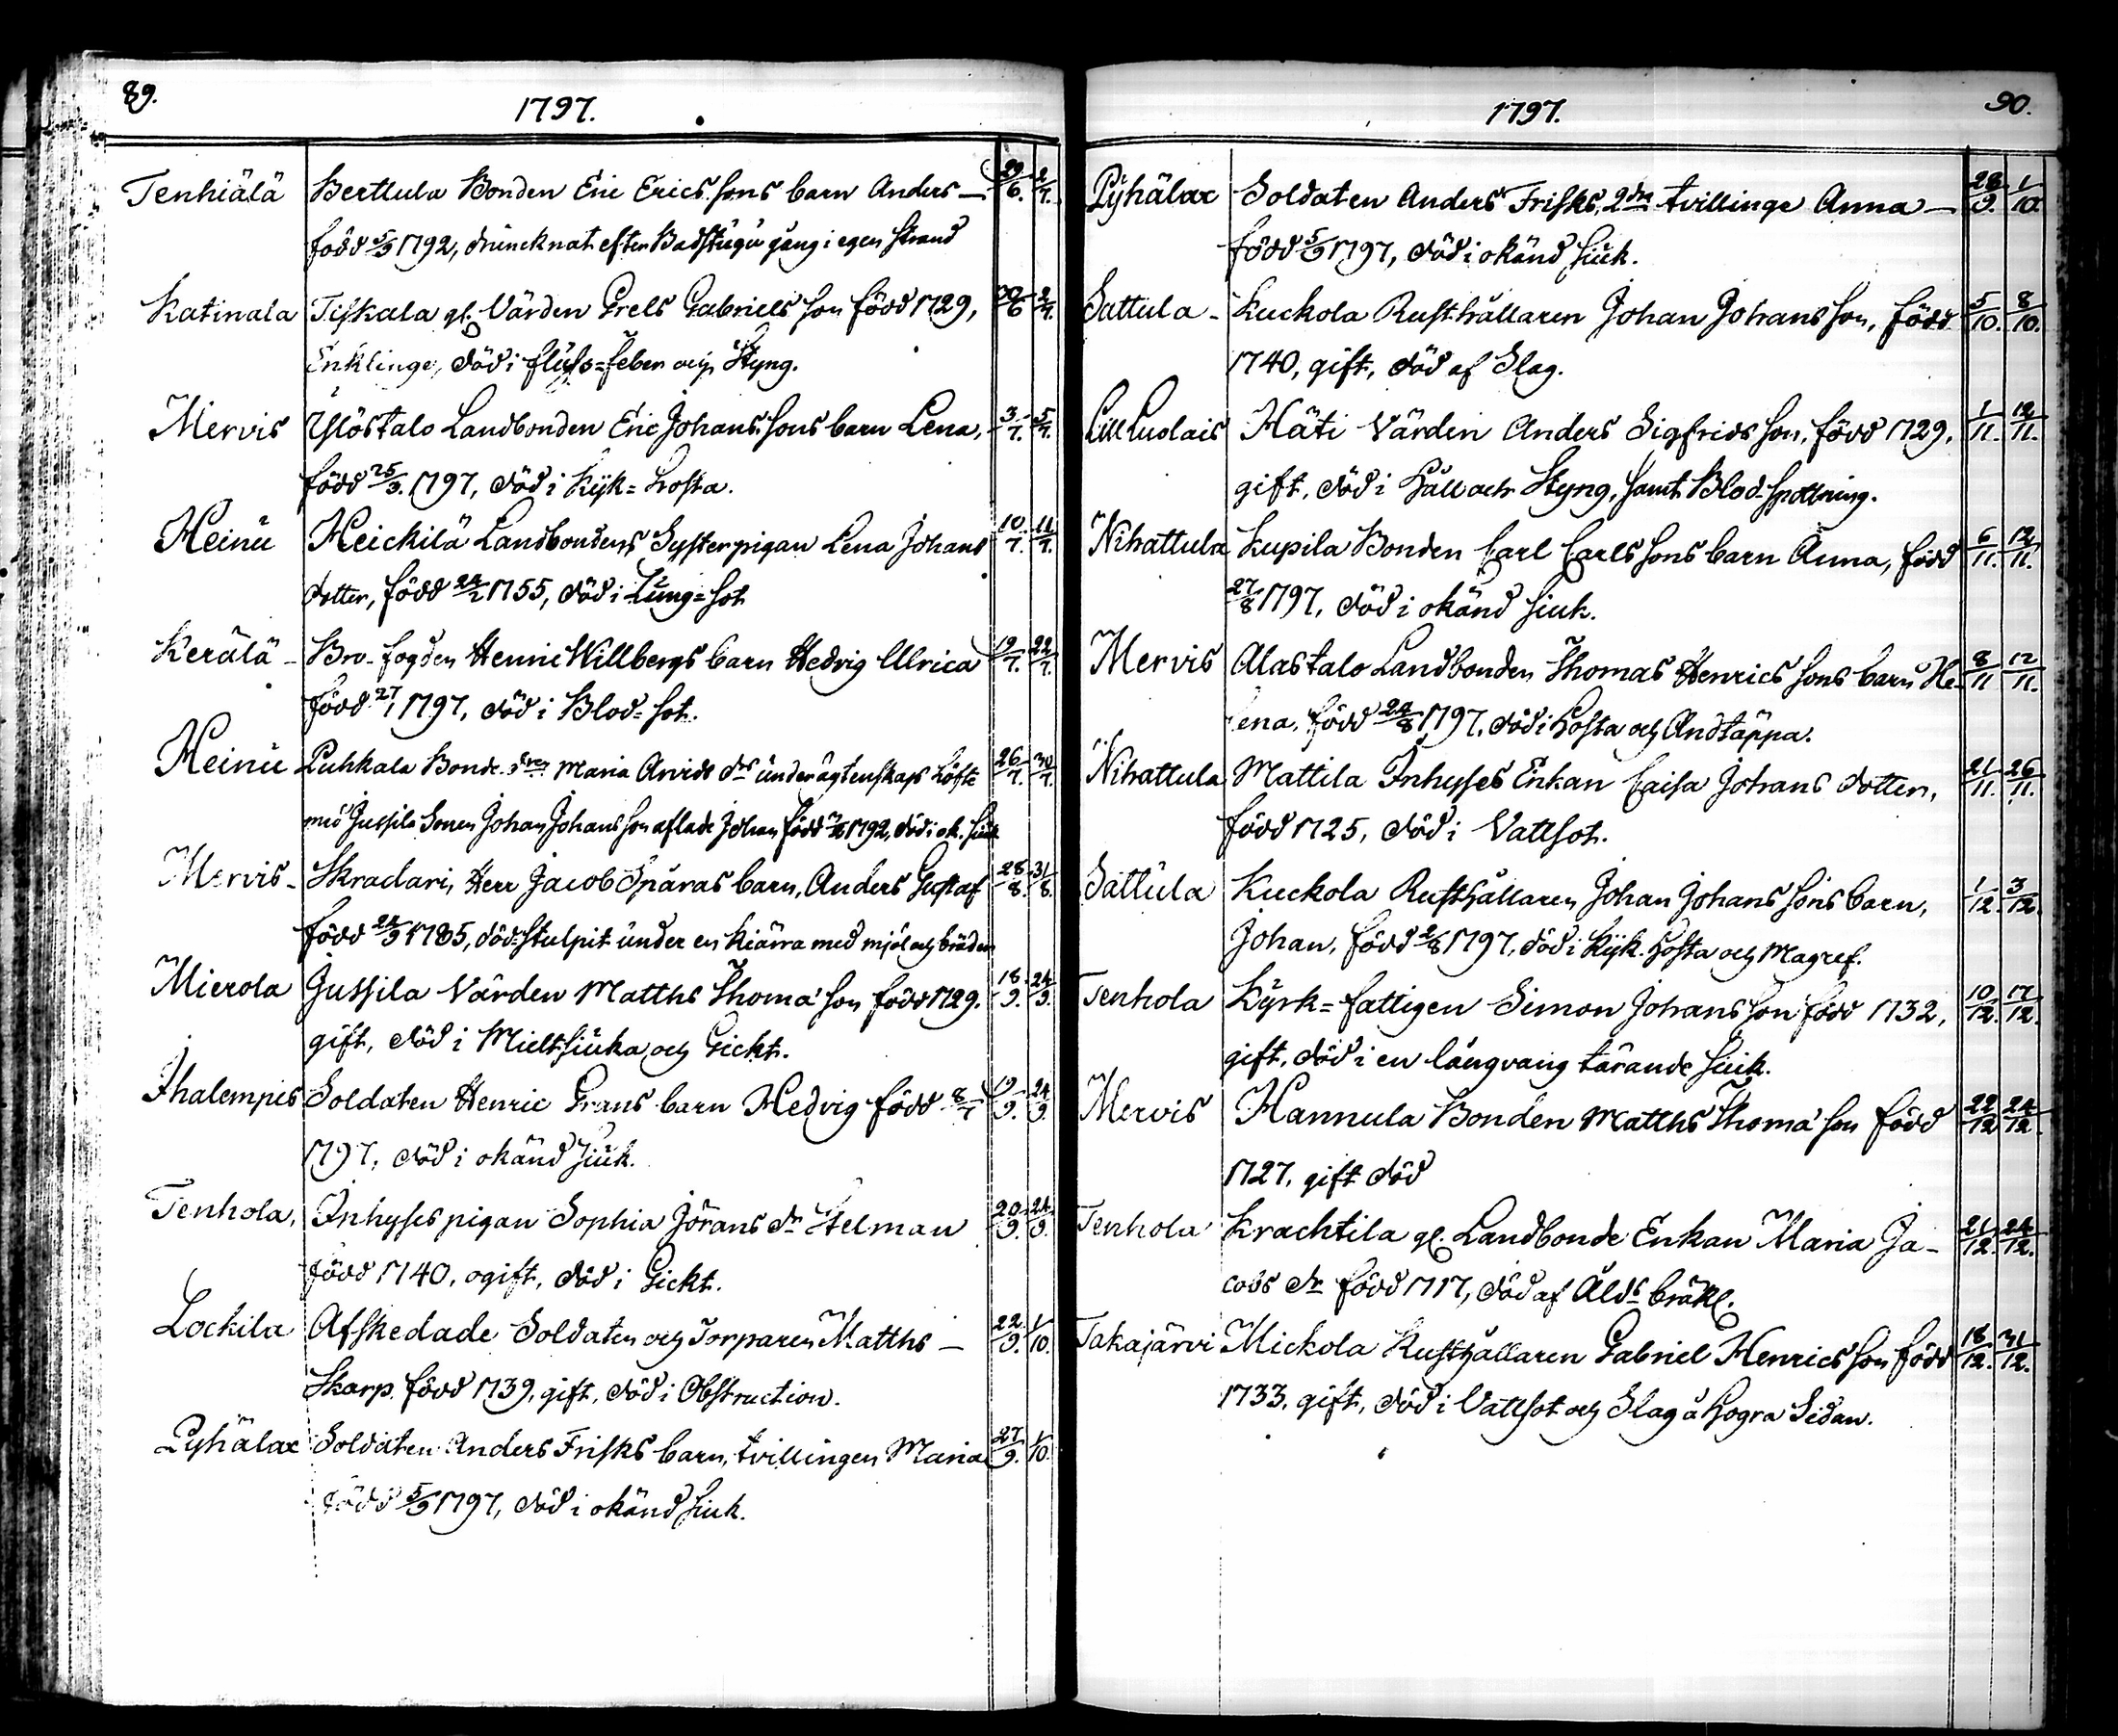 89.
1797.
Tenhiälä Berttula Bonden Eric Ericssons barn Anders — 29/6. 2/7.
född 5/9 1792, druncknat efter Badstugu gång i egen strand
Katinala Tiskala gl. Värden Grels Gabriels son född 1729, 30/6 2/7.
Enklinge, död i fluss=feber och Styng.
Mervis Ylöstalo Landbonden Eric Johans sons barn Lena, 3/7. 5/7.
född 25/3. 1797, död i Kijk=hosta.
Heinu Heickilä Landbondens Systerpigan Lena Johans 10/7. 11/7.
dotter, född 24/2 1755, död i Lung=sot
Kerälä – Bro-fogden Henric Willbergs barn Hedvig Ulrica 19/7. 22/7.
född 27/1 1797, död i Blod=sot.
Heinu Puhkala Bonde dren Maria Anvids drs under ägtenskaps löfte 26/7. 30/7.
med Jussila Sonen Johan Johansson aflade Johan född 1792, död i ok. siuk
Mervis – Skradari, Herr Jacob Spåras barn, Anders Gustaf 28/8. 31/8.
född 24/9 1785, död stulpit under en kiärra med mjöl och bräder
Mierola Jussila Värden Matths Thomæson född 1729. 18/9. 24/9.
gift, död i Mieltsiuka och Gickt.
Ihalempis Soldaten Henric Grans barn Hedvig född 8/7 19/9. 24/9.
1797, död i okänd siuk.
Tenhola, Inhyses pigan Sophia Jörans dr Stelman 20/9. 24/9.
född 1740, ogift, död i Gickt.
Lockila Afskedade Soldaten och Torparen Matths — 22/9. 1/10.
Skarp. född 1739, gift, död i Obstruction.
Pyhälax Soldaten Anders Frisks barn, tvillingen Maria 27/9. 1/10.
född 5/9 1797, död i okänd siuk.
1797.
90.
Pyhälax Soldaten Anders Frisks, 2dre tvillinge Anna — 28/9. 1/10.
född 5/9 1797, död i okänd siuk.
Sattula – Kuckola Rusthållaren Johan Johansson, född 5/10. 8/10.
1740, gift, död af Slag.
Lill Luolais Häti Värden Anders Sigfrids son, född 1729, 1/11. 12/11.
gift, död i håll och Styng, samt Blod-spottning.
Nihattula Kupila Bonden Carl Carlssons barn Anna, född 6/11. 12/11.
27/8 1797, död i okänd siuk.
Mervis Alastalo Landbonden Thomas Henrics sons barn He- 8/11 12/11.
lena, född 24/8 1797, död i hosta och Andtäppa.
Nihattula Mattila Inhyses Enkan Caisa Johans dotter, 21/11. 26/11.
född 1725, död i Vattsot.
Sattula Kuckola Rusthållaren Johan Johans sons barn, 1/12. 3/12.
Johan, född 2/8 1797, död i Kijk-hosta och Magref.
Tenhola Kyrk=fattigen Simon Johansson född 1732, 10/12. 17/12.
gift, död i en långvarig tärande siuk.
Mervis Hannula Bonden Matths Thomæ son född 22/12 24/12.
1727, gift död
Tenhola Krachtila gl. Landbonde Enkan Maria Ja- 21/12. 24/12.
cobs dr född 1717, död af Ålds bräkl.
Takajärvi Mickola Rusthållaren Gabriel Henrics son född 18/12. 31/12.
1733, gift, död i Vattsot och Slag å högra Sidan.